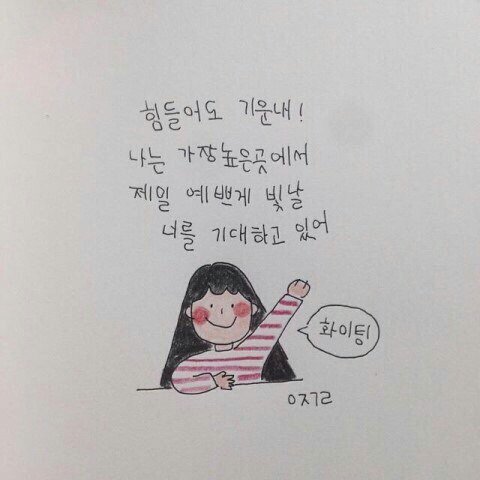 힘들어도 기운내!
나는 가장높은곳에서
제일 예쁘게 빛날
너를 기대하고 있어
화이팅